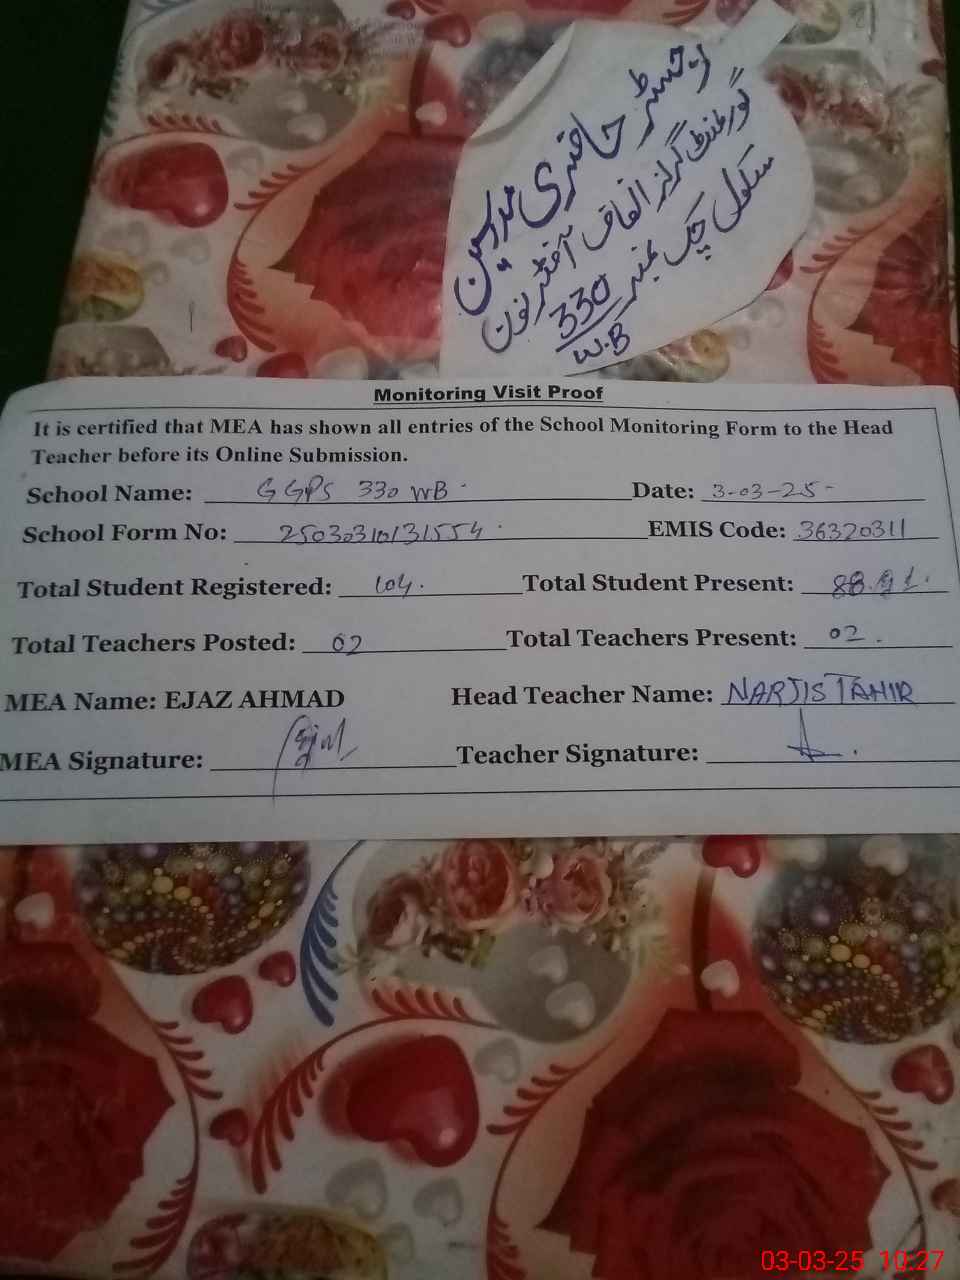 رجسٹر حاضری مدرسین
گورنمنٹ گرلز الفاف آفٹر نون
سکول چک نمبر 330
W.B
Monitoring Visit Proof
It is certified that MEA has shown all entries of the School Monitoring Form to the Head
Teacher before its Online Submission.
School Name: GGPS 330 WB Date: 3-03-25
School Form No: 25030310131554 EMIS Code: 36320311
Total Student Registered: 104 Total Student Present: 88
Total Teachers Posted: 02 Total Teachers Present: 02
MEA Name: EJAZ AHMAD Head Teacher Name: NARJIS TAHIR
MEA Signature: Teacher Signature:
03-03-25 10:27